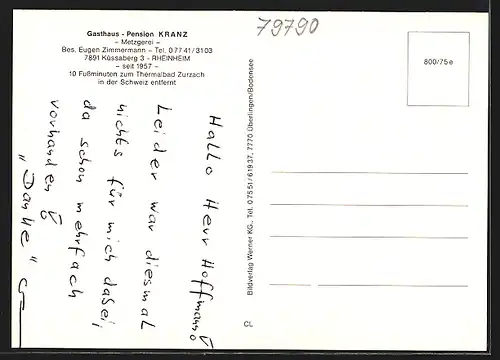 Gasthaus - Pension KRANZ
– Metzgerei –
Bes. Eugen Zimmermann – Tel. 0 77 41 / 31 03
7891 Küssaberg 3 - RHEINHEIM
– seit 1957 –
10 Fußminuten zum Thermalbad Zurzach
in der Schweiz entfernt
79790
800/75e
Hallo Herr Hoffmann
Leider war diesmal
nichts für mich dabei,
da schon mehrfach
vorhanden
"Danke"
Bildverlag Werner KG., Tel. 0 75 51 / 6 19 37, 7770 Überlingen/Bodensee
CL